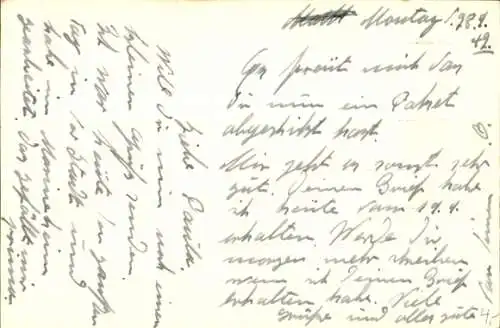 Montag d. 28.4.
49.
Es freut mich das
Du nun ein Paket
abgeschickt hast.
Mir geht es sonst sehr
gut. Deinen Brief habe
ich heute vom 19.4.
erhalten. Werde Dir
morgen mehr schreiben
wenn ich Deinen Brief
erhalten habe. Viele
Grüße und alles gute
Liebe Paula.
Will Dir nun noch einen
kleinen Gruß senden.
Ich war heute den ganzen
Tag in der Stadt und
habe in Mannheim
gearbeitet. Das gefällt mir
prima